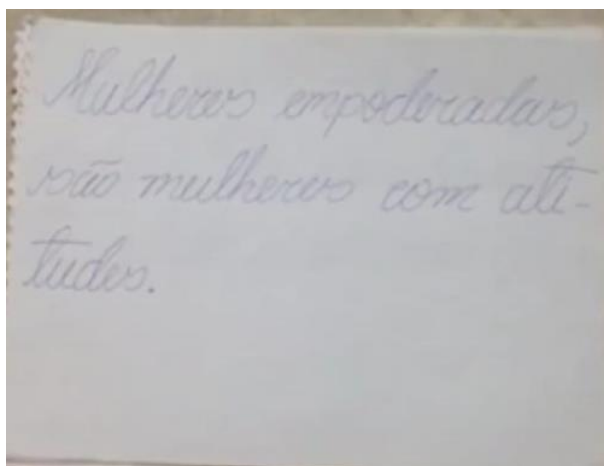 Mulheres empoderadas,
são mulheres com ati-
tudes.